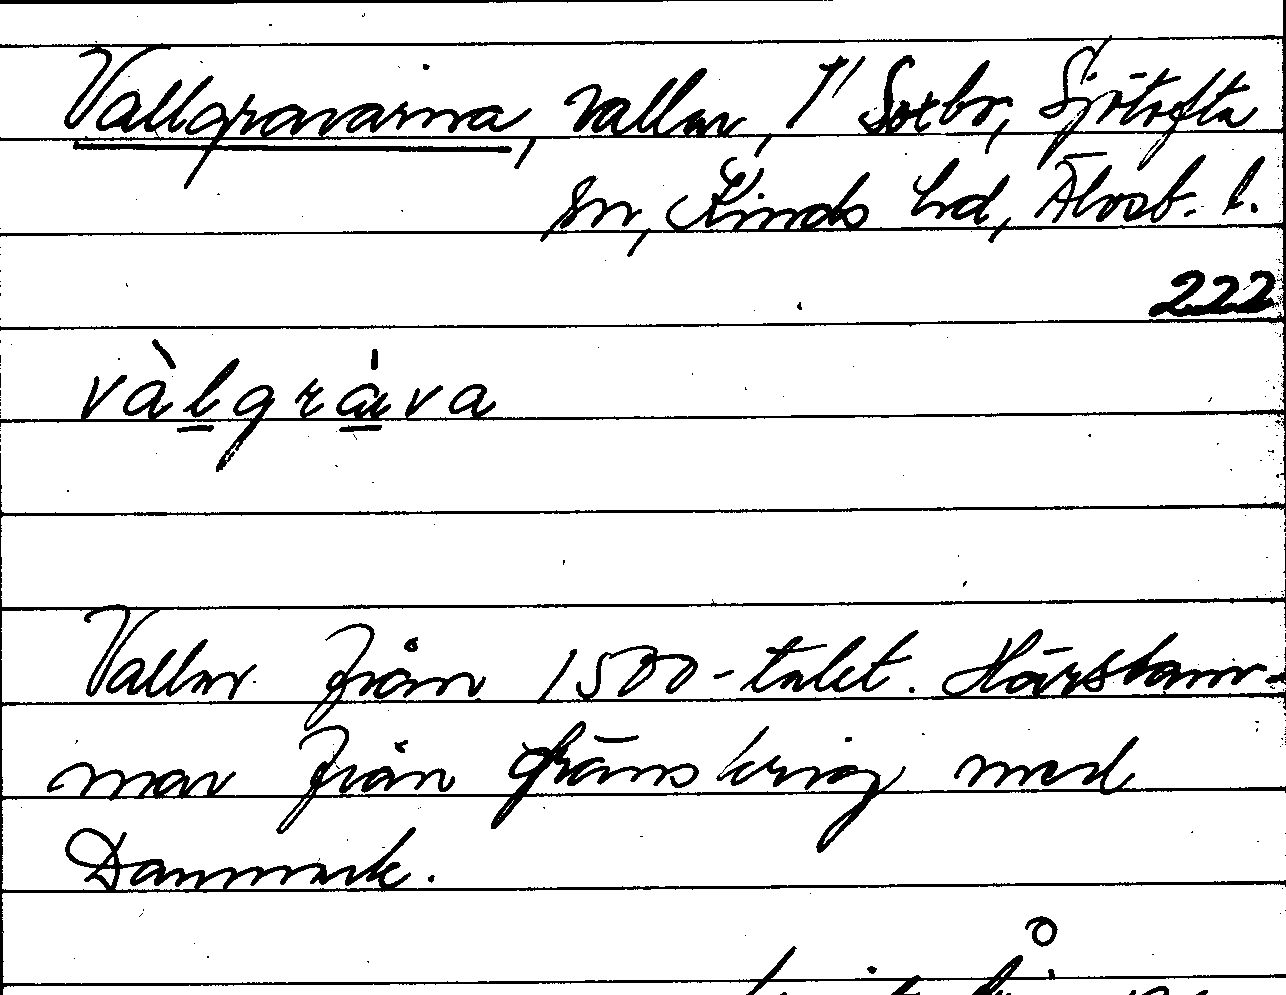 Vallgravarna, vallar, 1/ Sotbo, Sjötofta
sn, Kinds hd, Älvsb. l.
222
vàlgráva
Vallar från 1500-talet. Härstam-
mar från gränskrig med
Danmark.